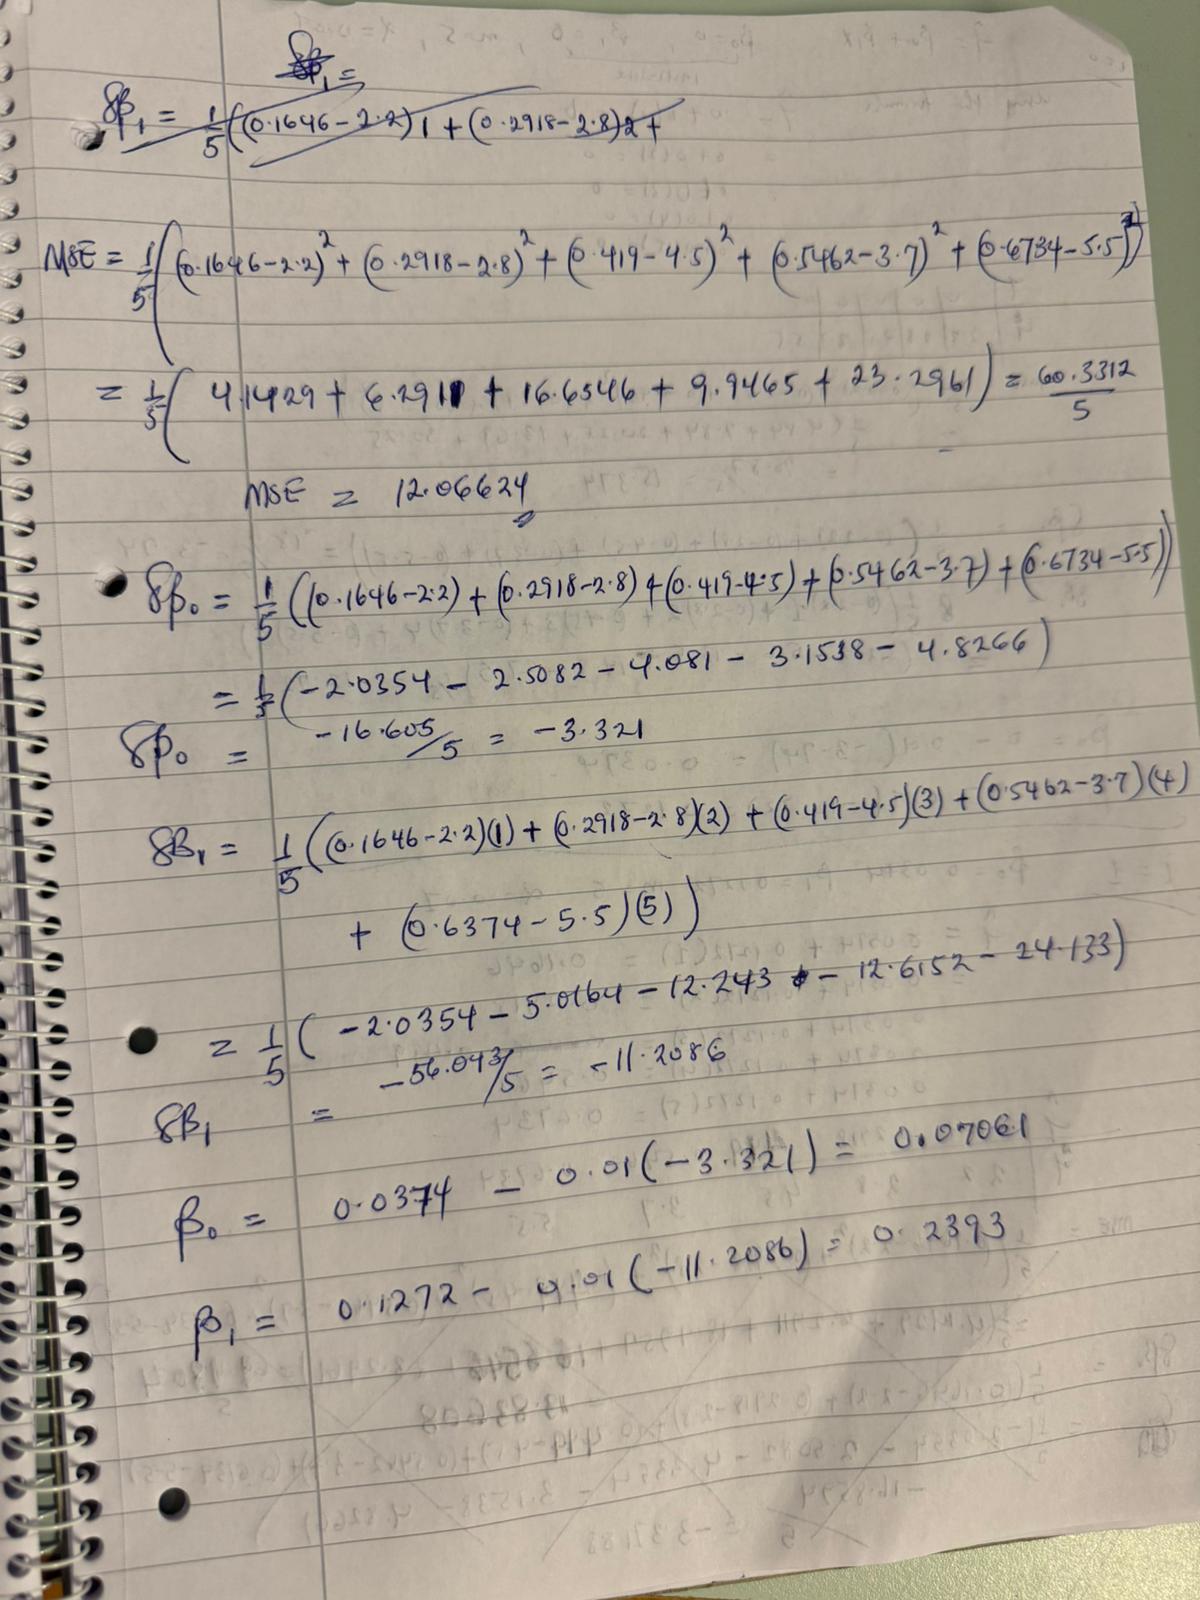 δβ₁ =
δβ₁ = 1/5 ((0.1646-2.2)1 + (0.2918-2.8)2 +
MSE = 1/5 ((0.1646-2.2)² + (0.2918-2.8)² + (0.419-4.5)² + (0.5462-3.7)² + (0.6734-5.5)²)
= 1/5 ( 4.1429 + 6.2911 + 16.6546 + 9.9465 + 23.2961) = 60.3312/5
MSE = 12.06624
δβ₀ = 1/5 ((0.1646-2.2) + (0.2918-2.8) + (0.419-4.5) + (0.5462-3.7) + (0.6734-5.5))
= 1/5 (-2.0354 - 2.5082 - 4.081 - 3.1538 - 4.8266)
δβ₀ = -16.605/5 = -3.321
δβ₁ = 1/5 ((0.1646-2.2)(1) + (0.2918-2.8)(2) + (0.419-4.5)(3) + (0.5462-3.7)(4)
+ (0.6374-5.5)(5))
= 1/5 ( -2.0354 - 5.0164 - 12.243 - 12.6152 - 24.133)
δβ₁ = -56.043/5 = -11.2086
β₀ = 0.0374 - 0.01(-3.321) = 0.07061
β₁ = 0.1272 - 0.01(-11.2086) = 0.2393